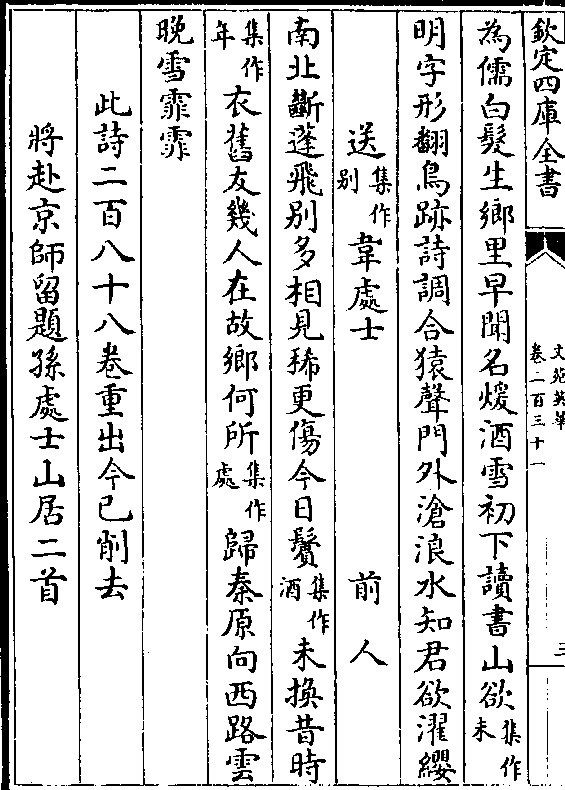 欽定四庫全書
文苑英華
卷二百三十一
三
為儒白髮生鄉里早聞名煖酒雪初下讀書山欲集作未
明字形翻鳥跡詩調合猿聲門外滄浪水知君欲濯纓
送集作别韋處士　前人
南北斷蓬飛别多相見稀更傷今日鬢集作酒未換昔時
集作年衣舊友幾人在故鄉何所集作處歸秦原向西路雲
晚雪霏霏
此詩二百八十八卷重出今已削去
將赴京師留題孫處士山居二首